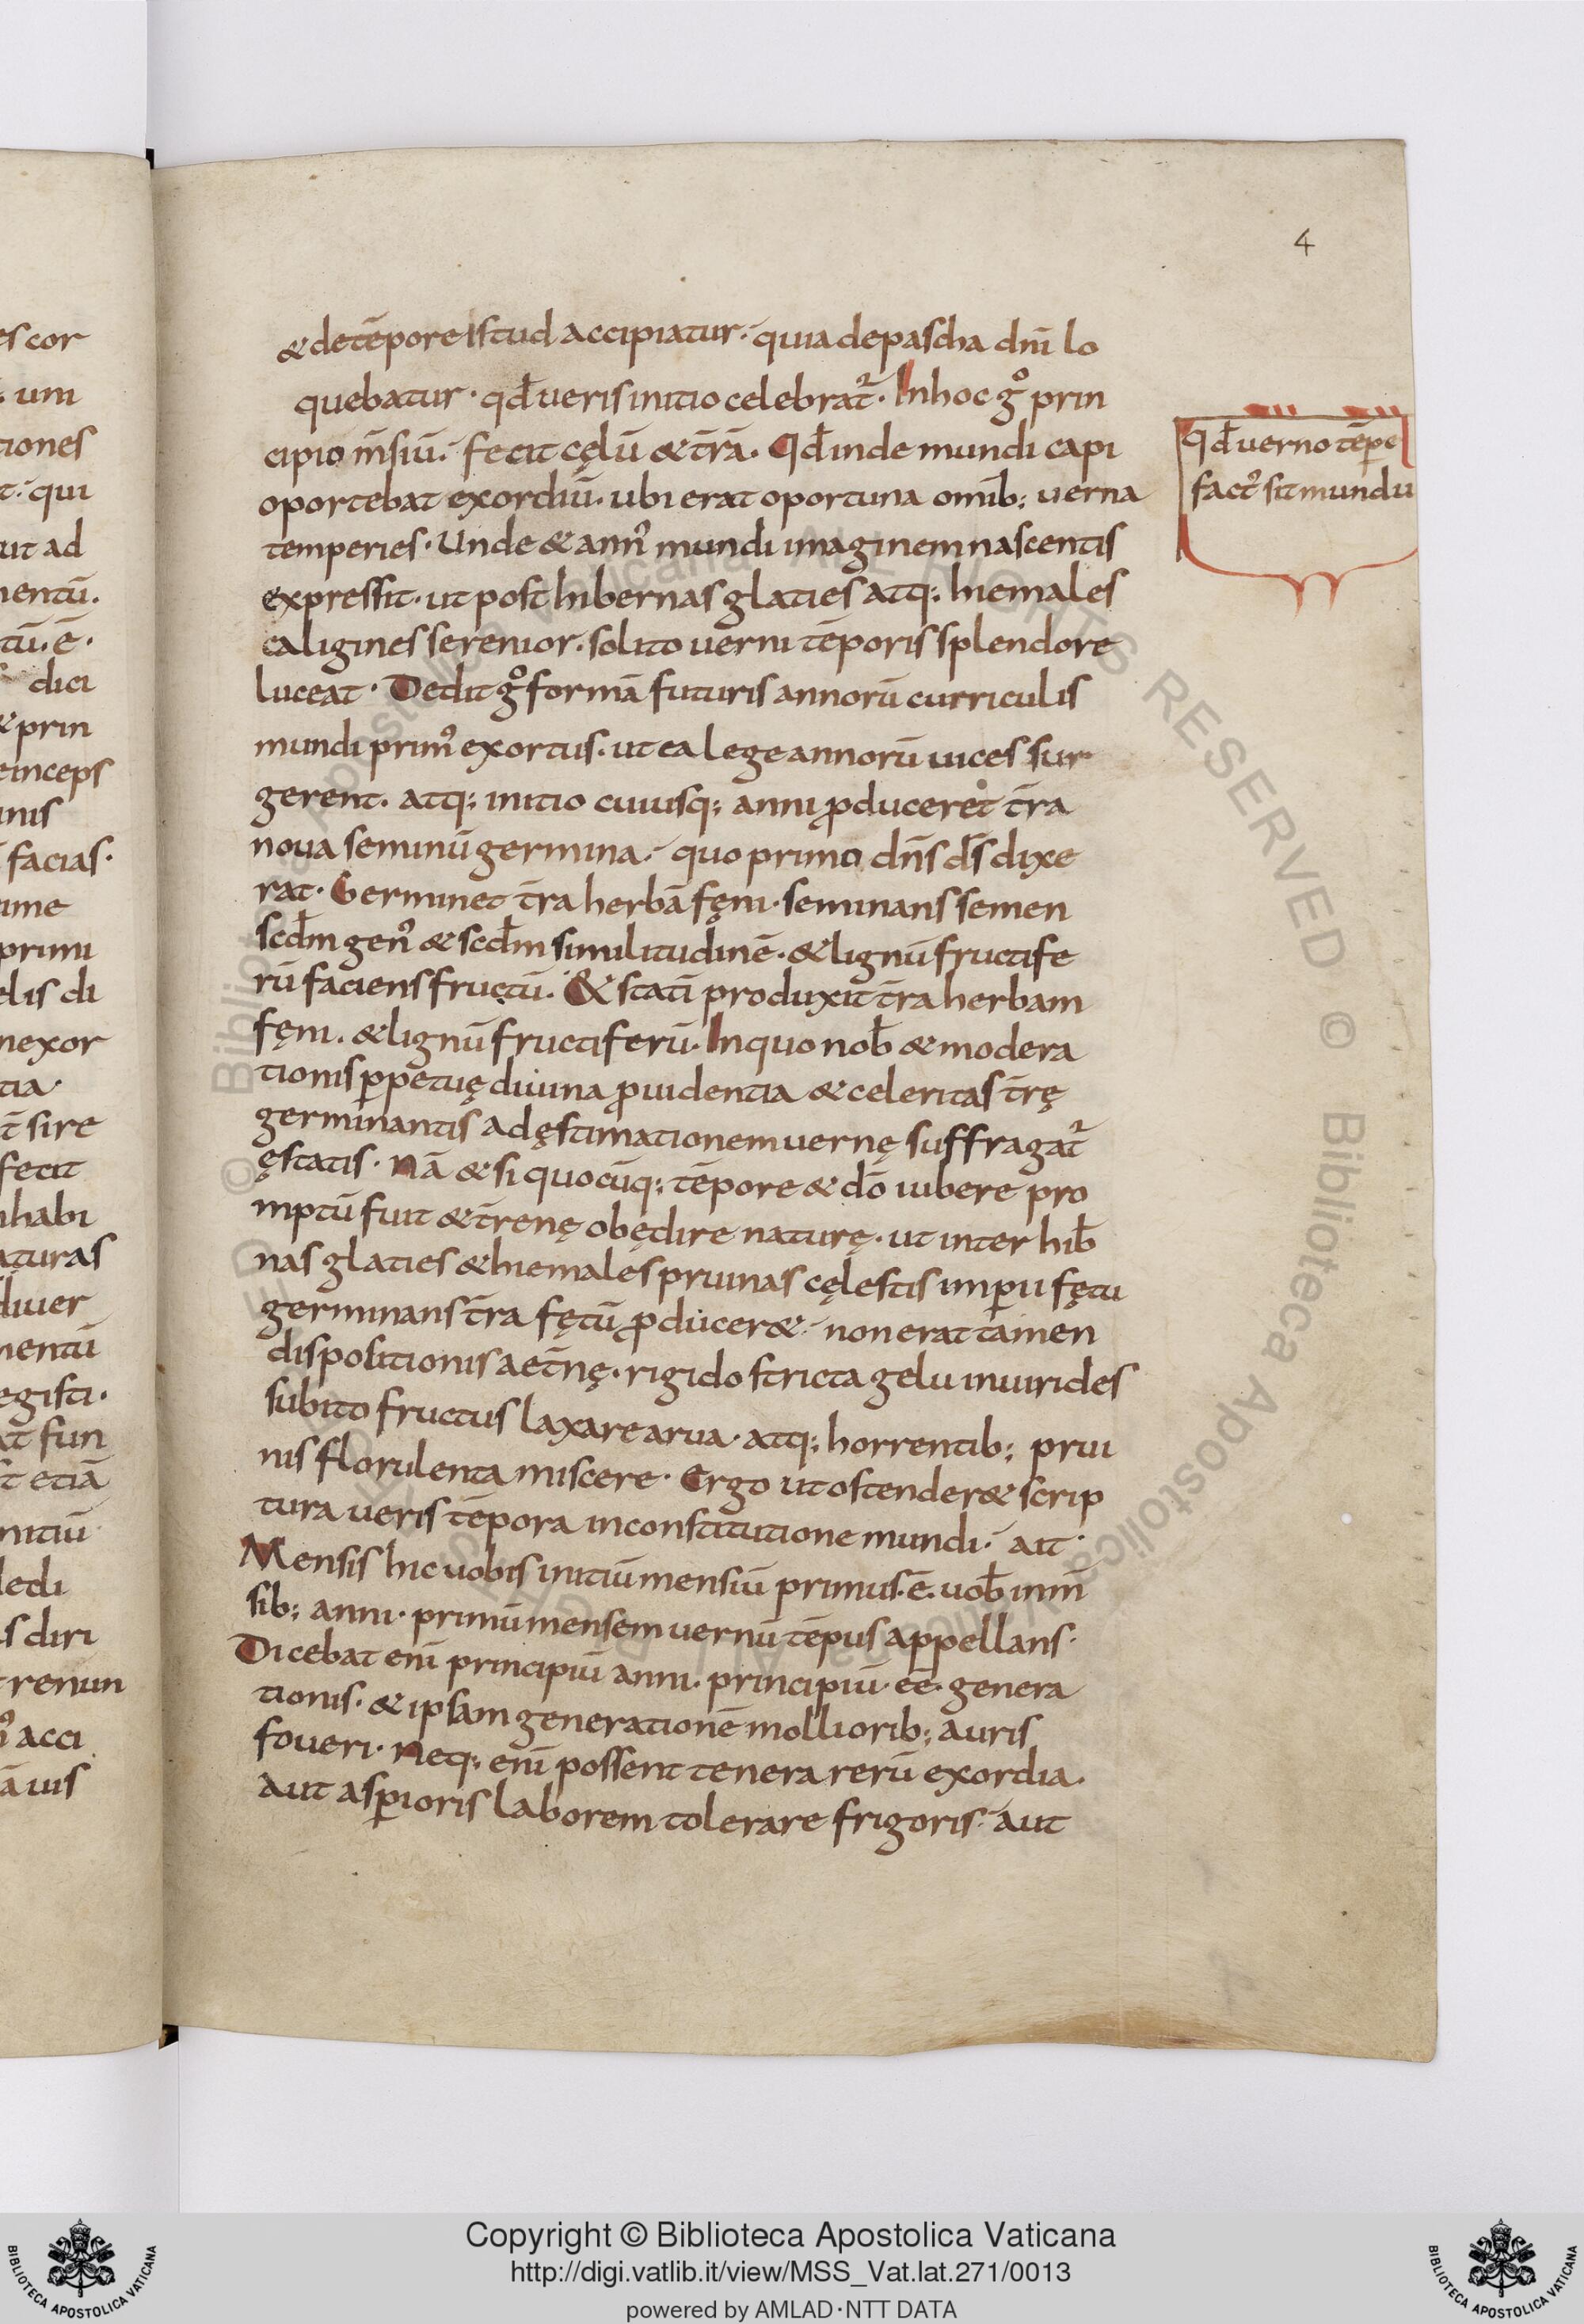 4
& de tēpore istud accipiatur. quia de pascha dn̄i lo
quebatur. qd̄ ueris initio celebrat᷒. In hoc g̊ prin
cipio m̄siū. fecit cęlū & tr̄ā. Qd̄ inde mundi capi
oportebat exordiū. ubi erat oportuna omib; uerna
temperies. Unde & ann᷒ mundi imaginem nascentis
expressit. ut post hibernas glaties atq; hiemales
caligines serenior. solito uerni tēporis splendore
luceat. Dedit g̊ formā futuris annorū curriculis
mundi prim᷒ exortus. ut ea lege annorū uices sur
gerent. atq; initio cuiusq; anni ꝓduceret tr̄a
noua seminū germina. quo primo dn̄s ds̄ dixe
rat. Germinet tr̄a herbā fęni. seminans semen
scd̄m gen᷒ & scd̄m similitudinē. & lignū fructife
rū faciens fructū. & stati produxit tr̄a herbam
fęni. & lignū fructiferū. In quo nob̄ & modera
tionis ꝑpetuę diuina ꝓuidentia & celeritas tr̄ę
germinantis ad ęstimationem uernę suffragat᷒
ęstatis. Nā & si quocūq; tēpore & dō iubere pro
mptū fuit & tr̄enę obędire naturę. ut inter hib̄
nas glaties & hiemales pruinas cęlestis imꝑii fętu
germinans tr̄a fętū ꝓducer&. non erat tamen
dispositionis aet̄nę. rigido stricta gelu in uirides
subito fructus laxare arua. atq; horrentib; prui
nis florulenta miscere. Ergo ut ostender& scrip
tura ueris tēpora in constitutione mundi. ait.
Mensis hic uobis initiū mensiū primus. ē. uob̄ in m̄
sib; anni. primū mensem uernū tēpus appellans.
Dicebat enī principiū anni. principiū. eē. genera
tionis. & ipsam generationē mollioribus; auris
foueri. Neq; enī possent tenera rerū exordia.
aut asꝑioris laborem tolerare frigoris. aut
qd̄ uerno tēpe
fact᷒ sit mundu
es cor
um
tiones
t. qui
ut ad
mentū.
tū. ē.
dici
& prin
einceps
inis
facias.
ime
primi
elis di
nexor
tia
t̄ sire
fecit
nhabi
aturas
diuer
mentū
egisti.
at fun
t etiā
nitiū
ledi
s diri
renun
acci
ā uis
Copyright © Biblioteca Apostolica Vaticana
http://digi.vatlib.it/view/MSS_Vat.lat.271/0013
powered by AMLAD·NTT DATA
BIBLIOTECA APOSTOLICA VATICANA
BIBLIOTECA APOSTOLICA VATICANA